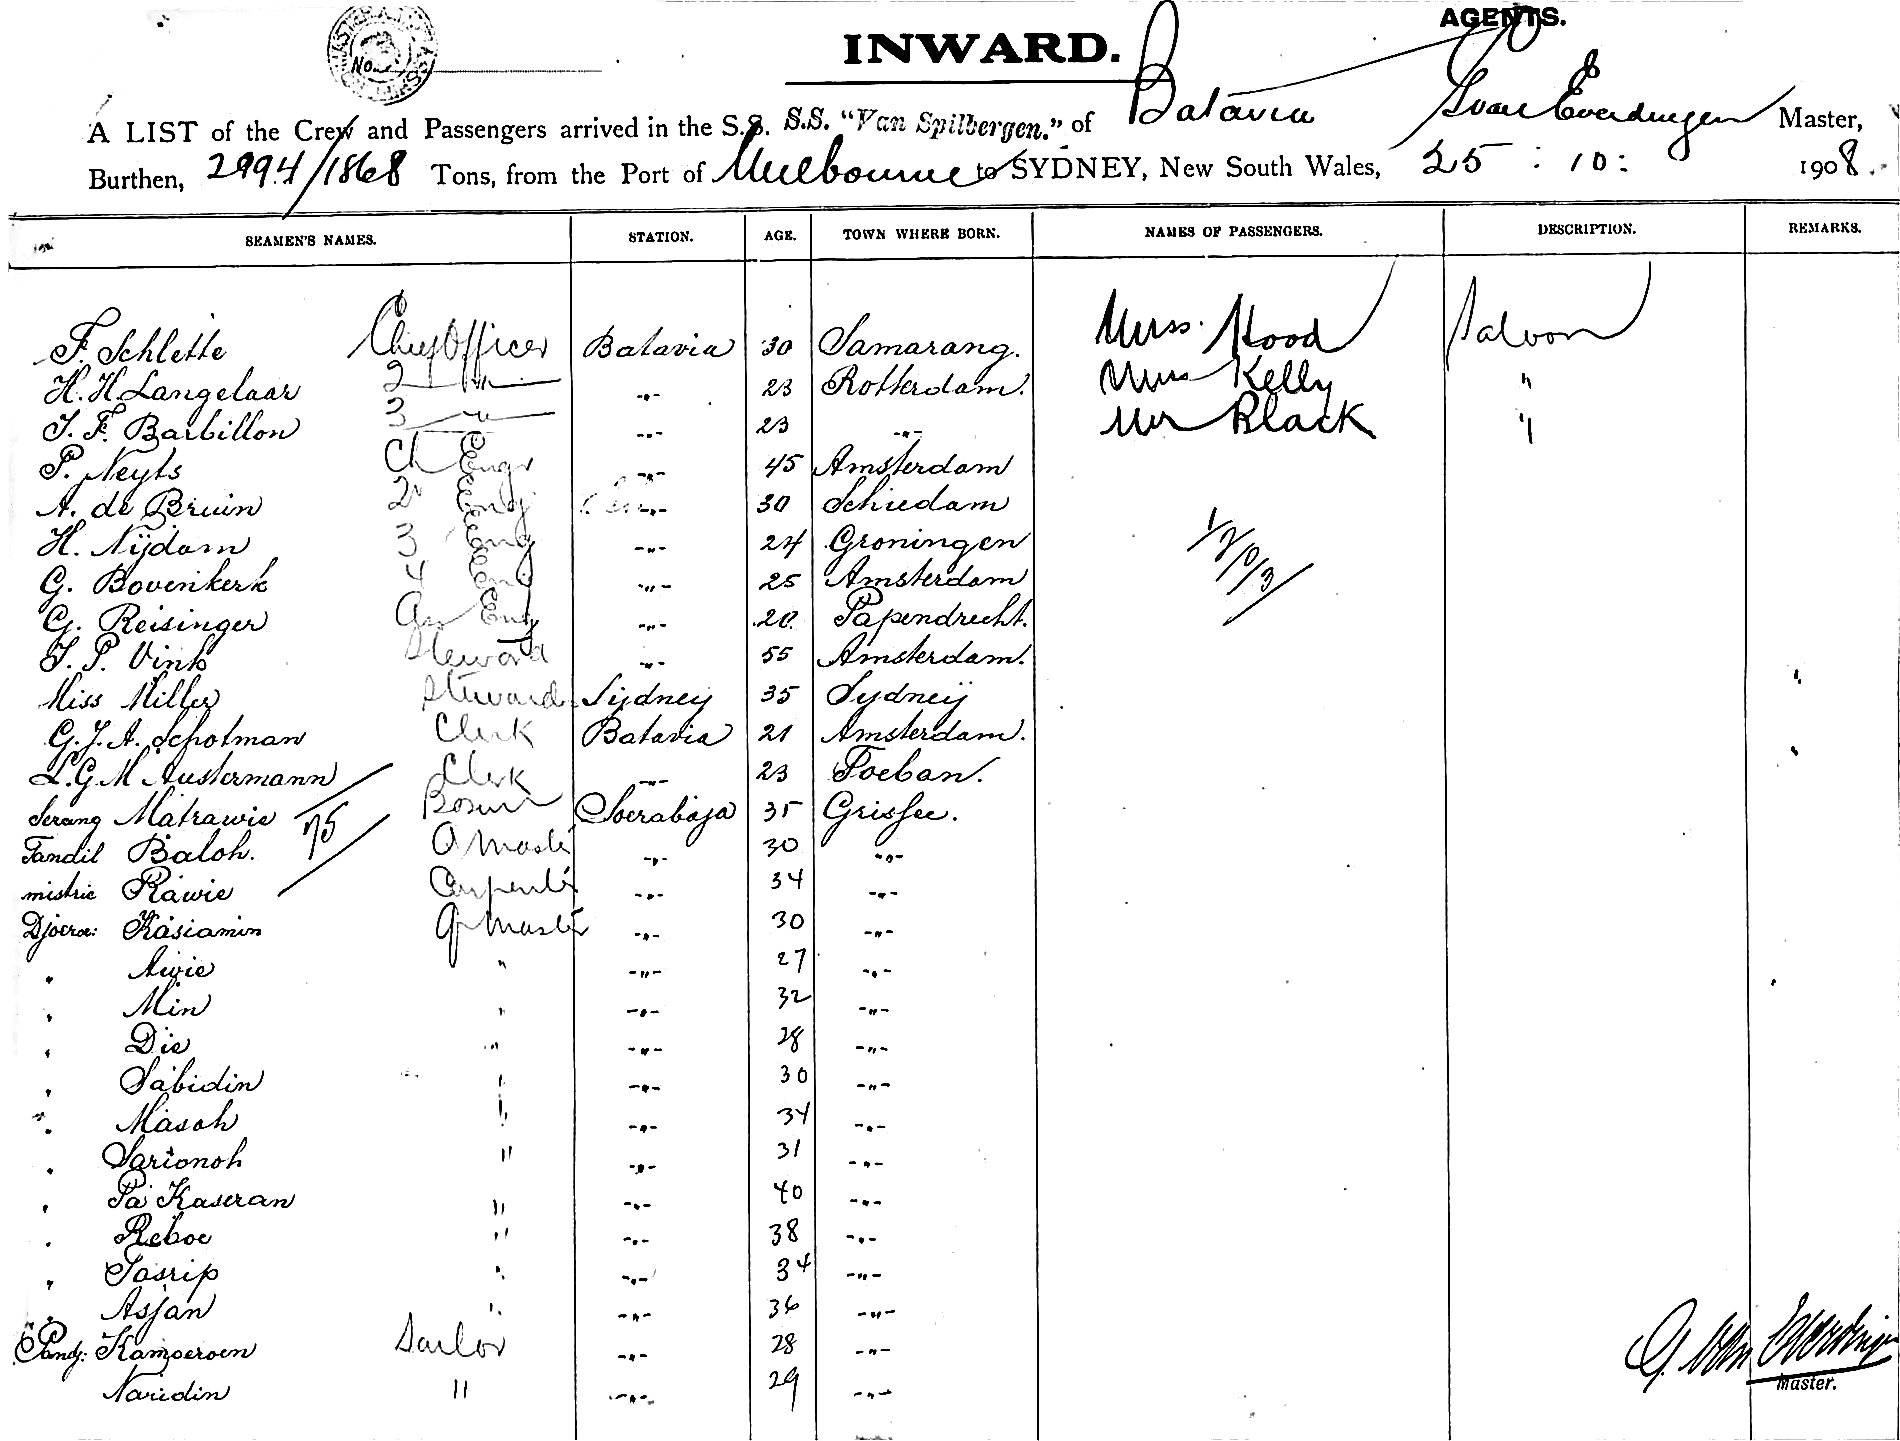 AGENTS.
INWARD.
No.
A LIST of the Crew and Passengers arrived in the S.S. S.S. "Van Spilbergen." of Batavia G van Everdingen Master,
Burthen, 2994/1868 Tons, from the Port of Melbourne to SYDNEY, New South Wales, 25 : 10 : 1908.
SEAMEN'S NAMES. STATION. AGE. TOWN WHERE BORN. NAMES OF PASSENGERS. DESCRIPTION. REMARKS.
F. Schlette Chief Officer Batavia 30 Samarang. Miss Hood Saloon
H. H. Langelaar 2 " -"- 23 Rotterdam. Miss Kelly "
J. F. Barbillon 3 " -"- 23 -"- Mr Black "
P. Neyts Ch Engr -"- 45 Amsterdam
A. de Bruin 2 Eng -"- 30 Schiedam
H. Nijdam 3 Eng -"- 24 Groningen
G. Bovenkerk 4 Eng -"- 25 Amsterdam
G. Reisinger Eng -"- 20 Papendrecht.
J. P. Vink Steward -"- 55 Amsterdam.
Miss Miller Steward Sydney 35 Sydney
G. J. A. Schotman Clerk Batavia 21 Amsterdam.
L. G. M Austermann Clerk -"- 23 Toeban.
Serang Matrawie 75 Bosun Soerabaja 35 Grissee.
Tandil Baloh. Q Maste -"- 30 -"-
mistrie Rawie Carpente -"- 34 -"-
Djoeroe: Kasiamin Q Maste -"- 30 -"-
" Awie " -"- 27 -"-
" Min " -"- 32 -"-
" Die " -"- 28 -"-
" Sabidin " -"- 30 -"-
" Masoh " -"- 34 -"-
" Sarionoh " -"- 31 -"-
" Pa Kaseran " -"- 40 -"-
" Reboe " -"- 38 -"-
" Tasrip " -"- 34 -"-
" Asjan " -"- 36 -"-
Pandj: Kamoeroen Sailor -"- 28 -"-
Naridin " -"- 29 -"-
G. van Everdingen
Master.